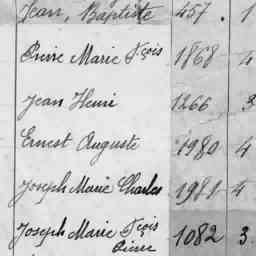 Jean, Baptiste 457. 1
Pierre Marie Fçois 1868 4
Jean Henri 1266 3
Ernest Auguste 1980 4
Joseph Marie Charles 1981 4
Joseph Marie Fçois 1082 3.
Pierre